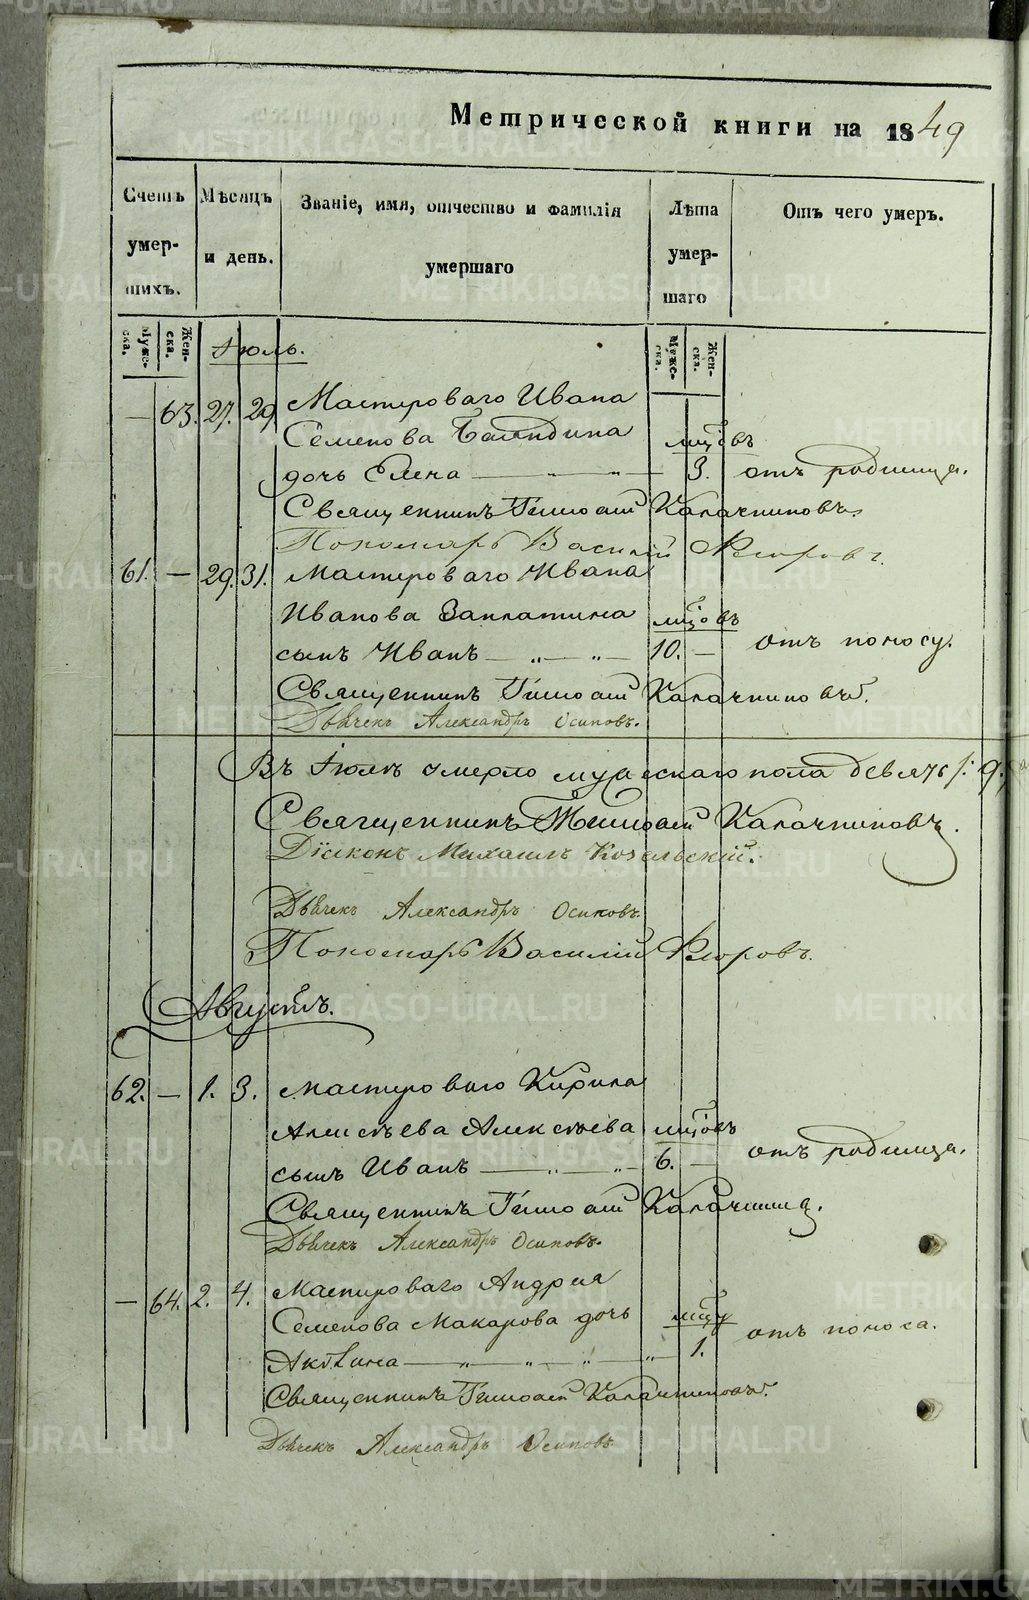 Метрической книги на 1849
Счетъ умер- шихъ.
Мѣсяцъ и день.
Званіе, имя, отчество и фамилія умершаго
Лѣта умер- шаго
Отъ чего умеръ.
Муже- ска.
Жен- ска.
Муже- ска.
Жен- ска.
Іюль.
— 63. 27. 29. Мастероваго Ивана
Семенова дочь Елена — „ — „ — мѣсяцовъ 3. отъ родимца.
Священникъ Тимоѳей Калачниковъ.
Пономарь Василій Ѳедоровъ.
61. — 29. 31. Мастероваго Ивана
Иванова Заплатина мѣсяцовъ
сынъ Иванъ — „ — „ — 10. — отъ поносу.
Священникъ Тимоѳей Калачниковъ.
Дьячекъ Александръ Осиповъ.
Въ Іюлѣ умерло мужескаго пола девять /: 9.
Священникъ Тимоѳей Калачниковъ.
Діаконъ Михаилъ Козельскій.
Дьячекъ Александръ Осиповъ.
Пономарь Василій Ѳедоровъ.
Августъ.
62. — 1. 3. Мастероваго Кирила
Алексѣева Алексѣева мѣсяцовъ
сынъ Иванъ — „ — „ — 6. — отъ родимца.
Священникъ Тимоѳей Калачниковъ.
Дьячекъ Александръ Осиповъ.
— 64. 2. 4. Мастероваго Андрея
Семенова Макарова дочь
Акилина — „ — „ — „ — „ — 1. отъ поноса.
Священникъ Тимоѳей Калачниковъ.
Дьячекъ Александръ Осиповъ.
METRIKI.GASO-URAL.RU